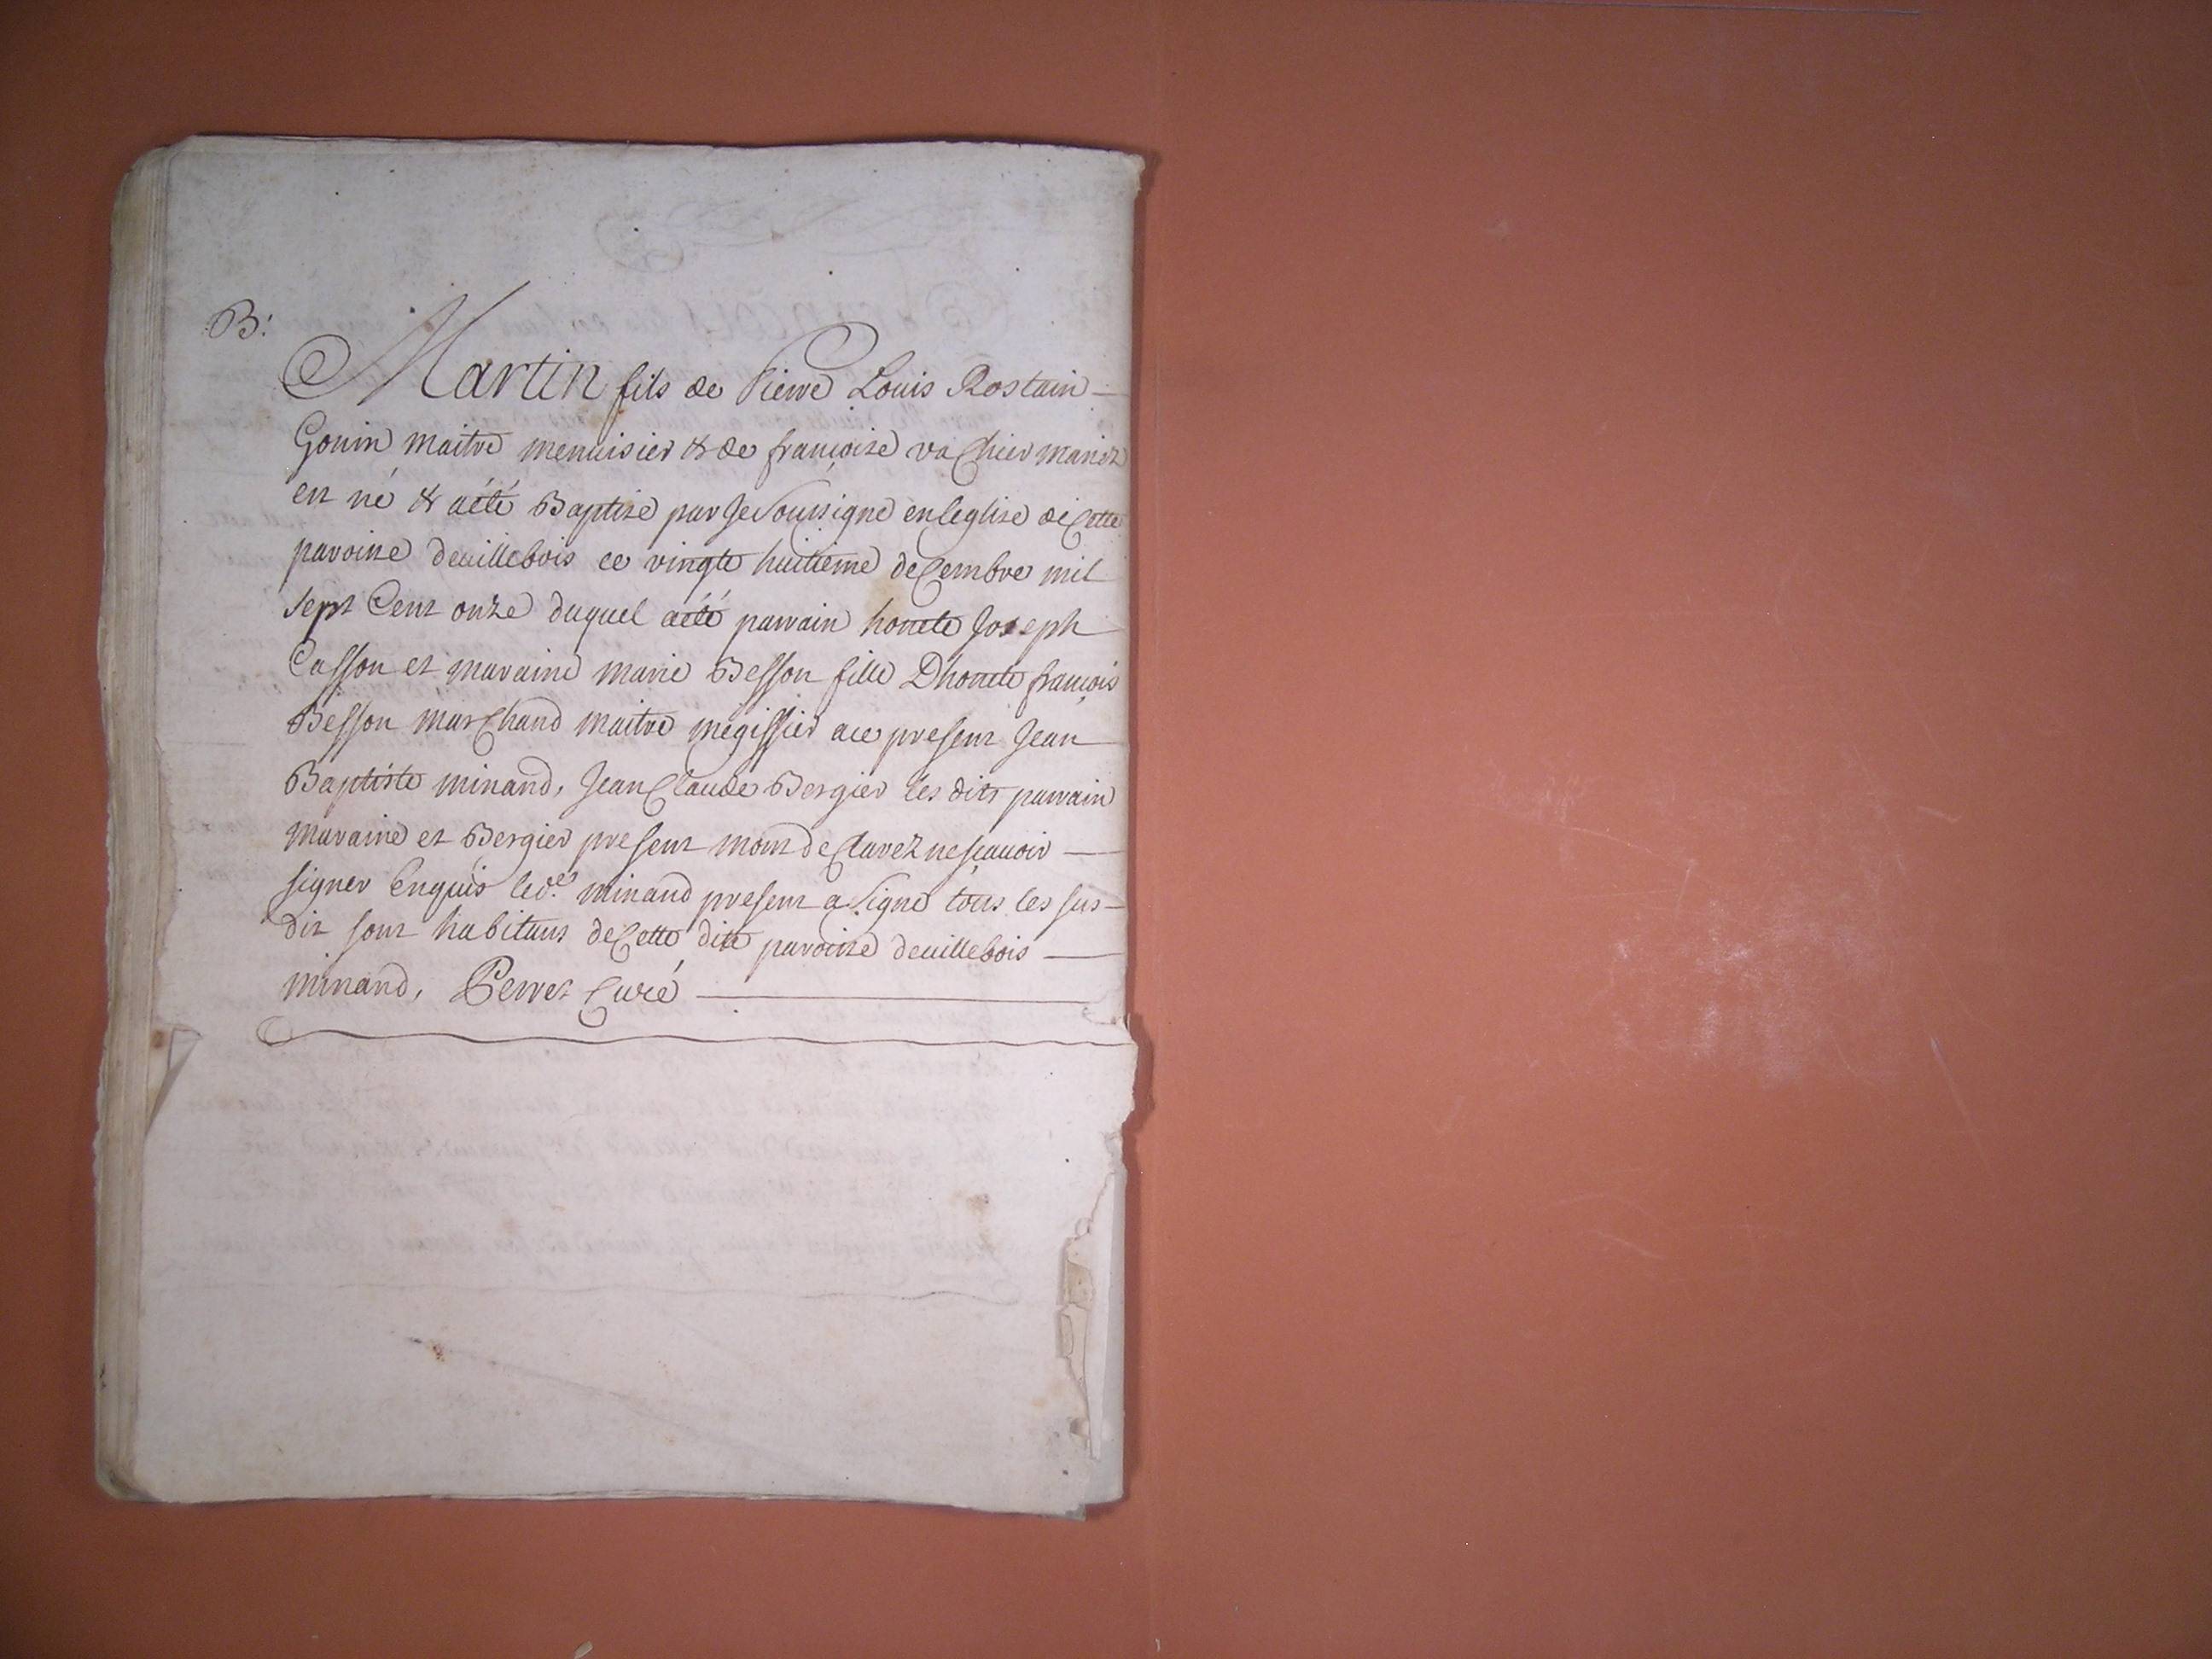 B:
Martin fils de Pierre Louis Rostain -
Gonin maitre menuisier & de françoise vachier mariez
est né & aété Baptisé par Je soussigné enleglise decette
paroisse deuillebois ce vingte huitieme decembre mil
sept Cent onze duquel aété parrain honete Joseph
Casson et maraine marie Besson fille Dhonete françois
Besson marchand maitre megissier ace present Jean
Baptiste minand, Jean Claude Bergier les dits parrain
maraine et Bergier present mont declarez nesçauoir —
signer Enquis led.^t minand present a signé tous les sus-
dit sont habitans decette dite paroisse deuillebois —
minand, Perret Curé —